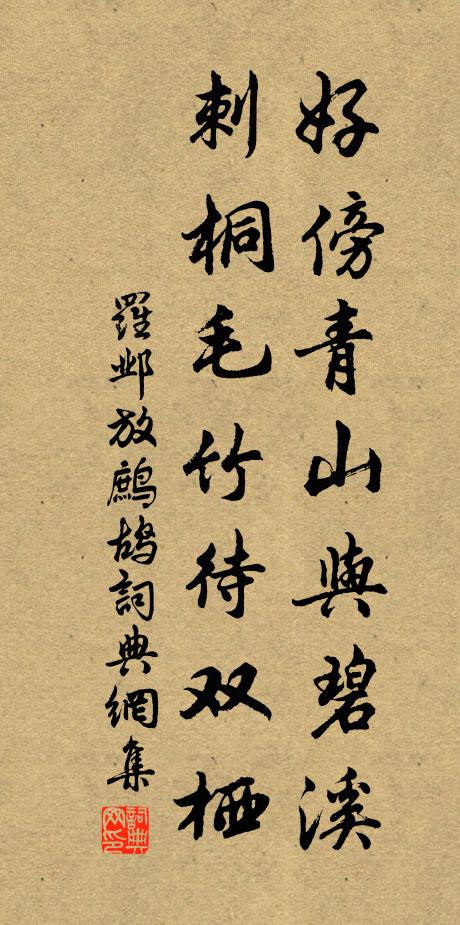 好傍青山與碧溪
刺桐毛竹待双栖
羅鄴放鷓鴣詞典網集
詞典网印